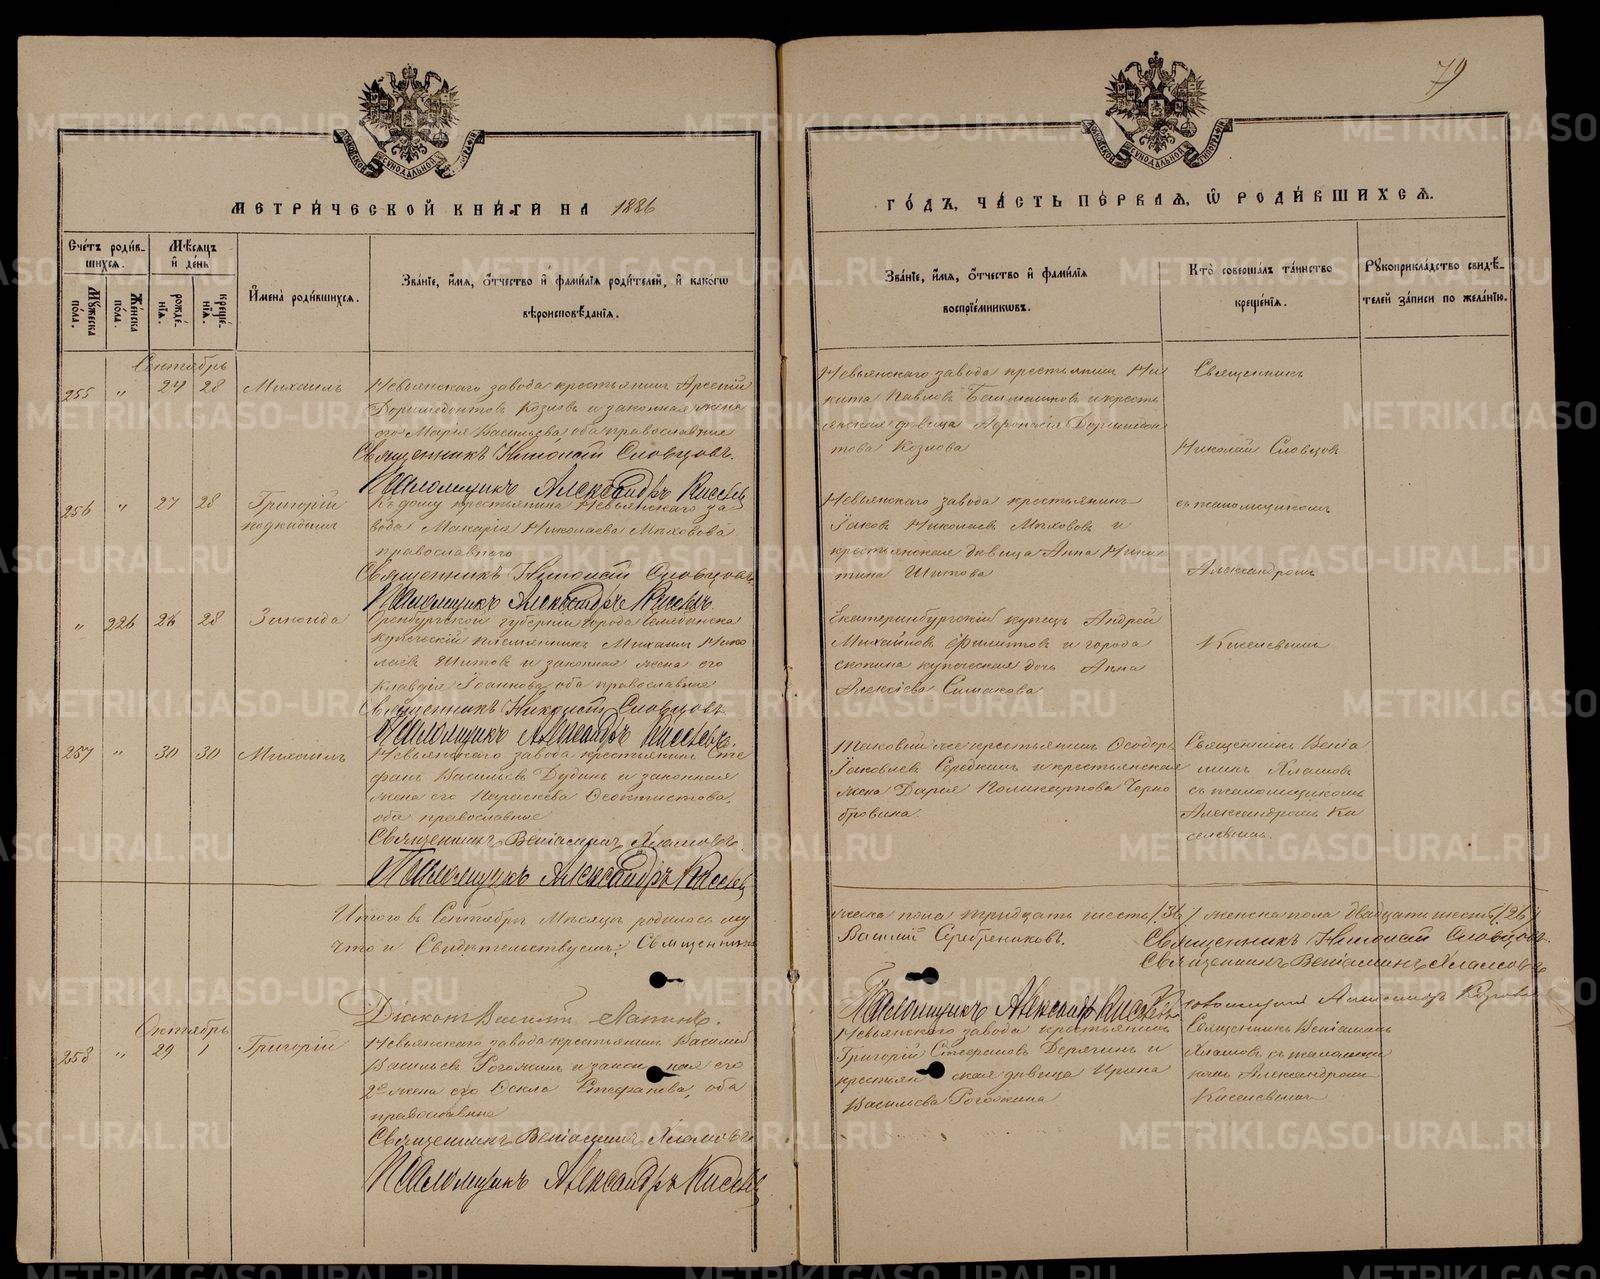 79
МЕТРИ́ЧЕСКОЙ КНИ́ГИ НА 1886
ГО́ДЪ, ЧА́СТЬ ПЕ́РВАѦ, Ѡ РОДИ́ВШИХСѦ.
Сче́тъ роди́в-
шихсѧ.
Мѣ́сѧцъ
и҆ де́нь
Мꙋ́жеска по́ла.
Же́нска по́ла.
рожде́-
нїѧ.
креще́-
нїѧ.
И҆мена̀ роди́вшихсѧ.
Зва́нїе, и҆́мѧ, ѻ҆́тчество и҆ фами́лїѧ роди́телей, и҆ како́гѡ
вѣроисповѣ́данїѧ.
Зва́нїе, и҆́мѧ, ѻ҆́тчество и҆ фами́лїѧ
воспрїе́мникѡвъ.
Кто̀ соверша́лъ та́инство
креще́нїѧ.
Рꙋкоприкла́дство свидѣ́-
телей за́писи по жела́нїю.
Сентябрь
255 " 24 28 Михаилъ
Невьянскаго завода крестьянинъ Арсеній
Доримедонтовъ Козловъ и законная жена
его Марія Васильева, оба православные
Священникъ Николай Словцовъ.
Псаломщикъ Александръ Киселевъ
Невьянскаго завода крестьянинъ Ни
кита Павловъ и кресть
янская дѣвица Афонасія Доримедон
това Козлова
Священникъ
Николай Словцовъ
256 " 27 28 Григорій
подкидышъ
Къ дому крестьянина Невьянскаго за
вода Макарія Николаева Мыховова
православнаго
Священникъ Николай Словцовъ
Псаломщикъ Александръ Киселевъ.
Невьянскаго завода крестьянинъ
Іаковъ Николаевъ Мыхововъ и
крестьянская дѣвица Анна Ники
тина Шитова
съ псаломщикомъ
Александромъ
" 226 26 28 Зинаида
Оренбургской губерніи города Челябинска
купеческій племянникъ Михаилъ Нико
лаевъ Шитовъ и законная жена его
Клавдія Іоаннова, оба православные
Священникъ Николай Словцовъ
Псаломщикъ Александръ Киселевъ.
Екатеринбургскій купецъ Андрей
Михайловъ Филитовъ и города
скопина купеческая дочь Анна
Алексіева Симакова
Киселевымъ
257 " 30 30 Михаилъ
Невьянскаго завода крестьянинъ Сте
фанъ Васильевъ Дудинъ и законная
жена его Параскева Феоктистова,
оба православные
Священникъ Веніаминъ Хламовъ.
Псаломщикъ Александръ Киселевъ
Таковый же крестьянинъ Феодоръ
Іаковлевъ Середкинъ и крестьянская
жена Дарья Поликарпова Черно
бровина.
Священникъ Веніа
минъ Хламовъ
съ псаломщикомъ
Александромъ Ки
селевымъ.
Итого въ Сентябрѣ Мѣсяцѣ родилось му
жеска пола тридцать шесть /36/ женска пола двадцать шесть /26/
что и Свидѣтельствуемъ: Священники
Василій Серебренниковъ.
Священникъ Николай Словцовъ.
Священникъ Веніаминъ Хламовъ
Діаконъ Василій Лапинъ.
Псаломщикъ Александръ Киселевъ
Псаломщикъ Александръ
Октябрь
258 " 29 1 Григорій
Невьянскаго завода крестьянинъ Василій
Васильевъ Рогожкинъ и законная его
2я жена его Фекла Стефанова, оба
православные
Священникъ Веніаминъ Хламовъ
Псаломщикъ Александръ Киселевъ
Невьянскаго завода крестьянинъ
Григорій Стефановъ Дерягинъ и
крестьянская дѣвица Ирина
Васильева Рогожкина
Священникъ Веніаминъ
Хламовъ съ псаломщи
комъ Александромъ
Киселевымъ
METRIKI.GASO-URAL.RU